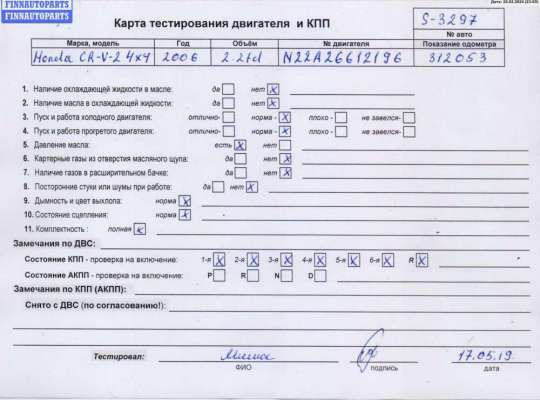 FINNAUTOPARTS
FINNAUTOPARTS
Карта тестирования двигателя и КПП
S-3297
№ авто
Марка, модель Год Объём № двигателя Показание одометра
Honda CR-V-2 4x4 2006 2.2td N22A26612196 312053
1. Наличие охлаждающей жидкости в масле: да нет X
2. Наличие масла в охлаждающей жидкости: да нет X
3. Пуск и работа холодного двигателя: отлично- норма - X плохо - не завелся-
4. Пуск и работа прогретого двигателя: отлично- норма - X плохо - не завелся-
5. Давление масла: есть X нет
6. Картерные газы из отверстия масляного щупа: да нет X
7. Наличие газов в расширительном бачке: да нет X
8. Посторонние стуки или шумы при работе: да нет X
9. Дымность и цвет выхлопа: норма X
10. Состояние сцепления: норма X
11. Комплектность: полная X
Замечания по ДВС:
Состояние КПП - проверка на включение: 1-я X 2-я X 3-я X 4-я X 5-я X 6-я X R X
Состояние АКПП - проверка на включение: P R N D
Замечания по КПП (АКПП):
Снято с ДВС (по согласованию!):
Тестировал: 17.05.19
ФИО подпись дата